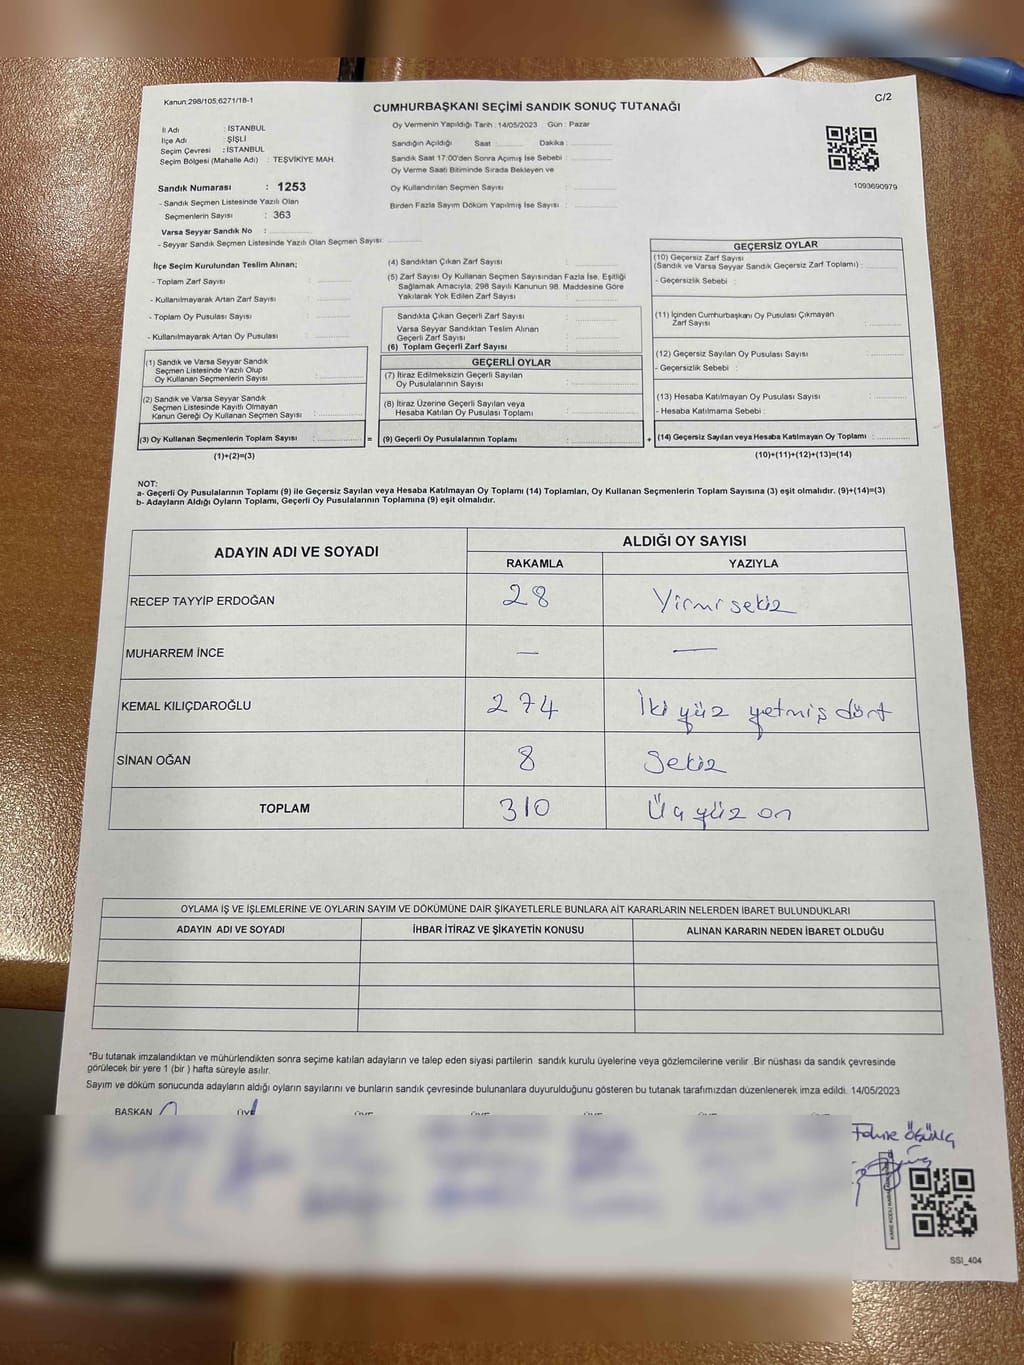 Kanun:298/105,6271/18-1
C/2
CUMHURBAŞKANI SEÇİMİ SANDIK SONUÇ TUTANAĞI
İl Adı : İSTANBUL
İlçe Adı : ŞİŞLİ
Seçim Çevresi : İSTANBUL
Seçim Bölgesi (Mahalle Adı) : TEŞVİKİYE MAH.
Sandık Numarası : 1253
- Sandık Seçmen Listesinde Yazılı Olan
Seçmenlerin Sayısı : 363
Varsa Seyyar Sandık No :
- Seyyar Sandık Seçmen Listesinde Yazılı Olan Seçmen Sayısı:
Oy Vermenin Yapıldığı Tarih : 14/05/2023 Gün : Pazar
Sandığın Açıldığı Saat : Dakika :
Sandık Saat 17:00'den Sonra Açımış İse Sebebi :
Oy Verme Saati Bitiminde Sırada Bekleyen ve
Oy Kullandırılan Seçmen Sayısı :
Birden Fazla Sayım Döküm Yapılmış İse Sayısı :
1093690979
İlçe Seçim Kurulundan Teslim Alınan;
- Toplam Zarf Sayısı :
- Kullanılmayarak Artan Zarf Sayısı :
- Toplam Oy Pusulası Sayısı :
- Kullanılmayarak Artan Oy Pusulası :
(1) Sandık ve Varsa Seyyar Sandık
Seçmen Listesinde Yazılı Olup
Oy Kullanan Seçmenlerin Sayısı :
(2) Sandık ve Varsa Seyyar Sandık
Seçmen Listesinde Kayıtlı Olmayan
Kanun Gereği Oy Kullanan Seçmen Sayısı :
(3) Oy Kullanan Seçmenlerin Toplam Sayısı :
(1)+(2)=(3)
(4) Sandıktan Çıkan Zarf Sayısı :
(5) Zarf Sayısı Oy Kullanan Seçmen Sayısından Fazla İse, Eşitliği
Sağlamak Amacıyla; 298 Sayılı Kanunun 98. Maddesine Göre
Yakılarak Yok Edilen Zarf Sayısı :
Sandıkta Çıkan Geçerli Zarf Sayısı :
Varsa Seyyar Sandıktan Teslim Alınan
Geçerli Zarf Sayısı :
(6) Toplam Geçerli Zarf Sayısı :
GEÇERLİ OYLAR
(7) İtiraz Edilmeksizin Geçerli Sayılan
Oy Pusulalarının Sayısı :
(8) İtiraz Üzerine Geçerli Sayılan veya
Hesaba Katılan Oy Pusulası Toplamı :
= (9) Geçerli Oy Pusulalarının Toplamı :
GEÇERSİZ OYLAR
(10) Geçersiz Zarf Sayısı
(Sandık ve Varsa Seyyar Sandık Geçersiz Zarf Toplamı) :
- Geçersizlik Sebebi :
(11) İçinden Cumhurbaşkanı Oy Pusulası Çıkmayan
Zarf Sayısı :
(12) Geçersiz Sayılan Oy Pusulası Sayısı :
- Geçersizlik Sebebi :
(13) Hesaba Katılmayan Oy Pusulası Sayısı :
- Hesaba Katılmama Sebebi :
+ (14) Geçersiz Sayılan veya Hesaba Katılmayan Oy Toplamı :
(10)+(11)+(12)+(13)=(14)
NOT:
a- Geçerli Oy Pusulalarının Toplamı (9) ile Geçersiz Sayılan veya Hesaba Katılmayan Oy Toplamı (14) Toplamları, Oy Kullanan Seçmenlerin Toplam Sayısına (3) eşit olmalıdır. (9)+(14)=(3)
b- Adayların Aldığı Oyların Toplamı, Geçerli Oy Pusulalarının Toplamına (9) eşit olmalıdır.
ADAYIN ADI VE SOYADI
ALDIĞI OY SAYISI
RAKAMLA
YAZIYLA
RECEP TAYYİP ERDOĞAN 28 Yirmi sekiz
MUHARREM İNCE — —
KEMAL KILIÇDAROĞLU 274 İki yüz yetmiş dört
SİNAN OĞAN 8 Sekiz
TOPLAM 310 Üç yüz on
OYLAMA İŞ VE İŞLEMLERİNE VE OYLARIN SAYIM VE DÖKÜMÜNE DAİR ŞİKAYETLERLE BUNLARA AİT KARARLARIN NELERDEN İBARET BULUNDUKLARI
ADAYIN ADI VE SOYADI
İHBAR İTİRAZ VE ŞİKAYETİN KONUSU
ALINAN KARARIN NEDEN İBARET OLDUĞU
*Bu tutanak imzalandıktan ve mühürlendikten sonra seçime katılan adayların ve talep eden siyasi partilerin sandık kurulu üyelerine veya gözlemcilerine verilir .Bir nüshası da sandık çevresinde
görülecek bir yere 1 (bir ) hafta süreyle asılır.
Sayım ve döküm sonucunda adayların aldığı oyların sayılarını ve bunların sandık çevresinde bulunanlara duyurulduğunu gösteren bu tutanak tarafımızdan düzenlenerek imza edildi. 14/05/2023
BAŞKAN
ÜYE
SSI_404